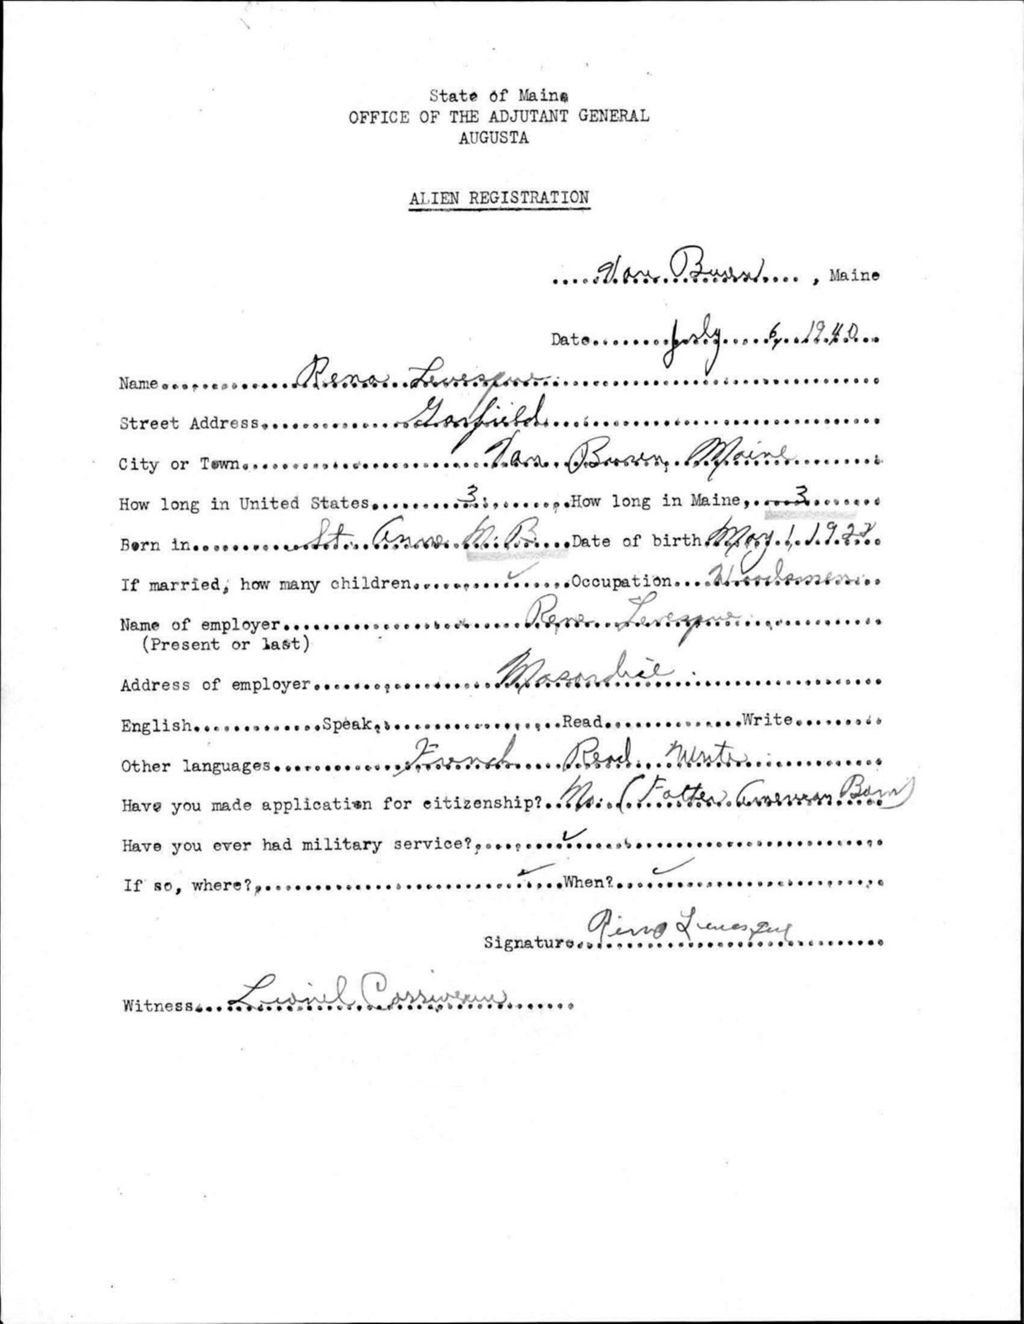 State of Maine
OFFICE OF THE ADJUTANT GENERAL
AUGUSTA
ALIEN REGISTRATION
Van Buren, Maine
Date July 6, 1940
Name Rena Levesque
Street Address Garfield
City or Town Van Buren, Maine
How long in United States 3 How long in Maine 3
Born in St. Anne N.B. Date of birth May 1, 1922
If married, how many children ✓ Occupation Woodsmen
Name of employer Rene Levesque
(Present or last)
Address of employer
English Speak Read Write
Other languages French Read Write
Have you made application for citizenship? No (Father American Born)
Have you ever had military service? ✓
If so, where? ✓ When? ✓
Signature Levesque
Witness Lionel